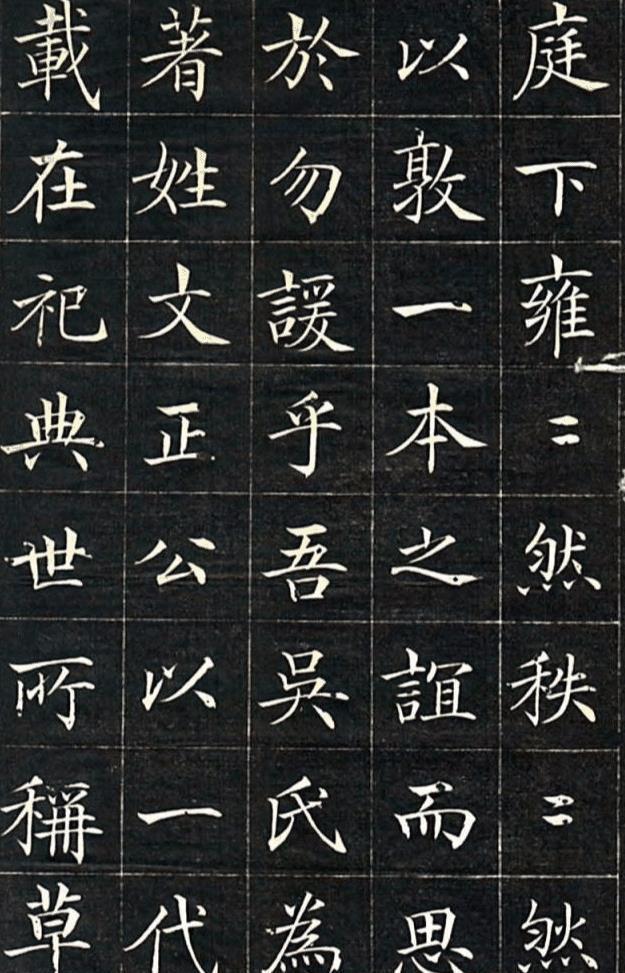 庭下雍〻然秩〻然
以敦一本之誼而思
於勿諼乎吾吳氏為
著姓文正公以一代
載在祀典世所稱草